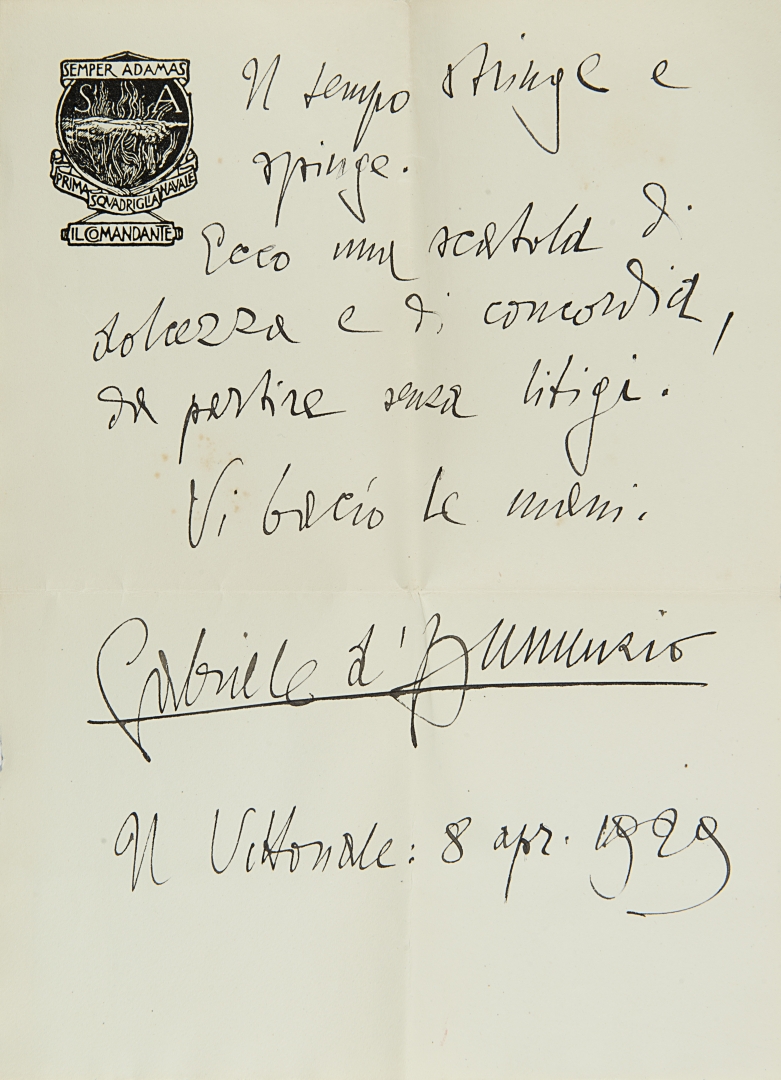 SEMPER ADAMAS
S A
PRIMA SQUADRIGLIA NAVALE
IL COMANDANTE
Il tempo stringe e
spinge.
Ecco una scatola di
dolcezza e di concordia,
da partire senza litigi.
Vi bacio le mani.
Gabriele d'Annunzio
Il Vittoriale: 8 apr. 1929